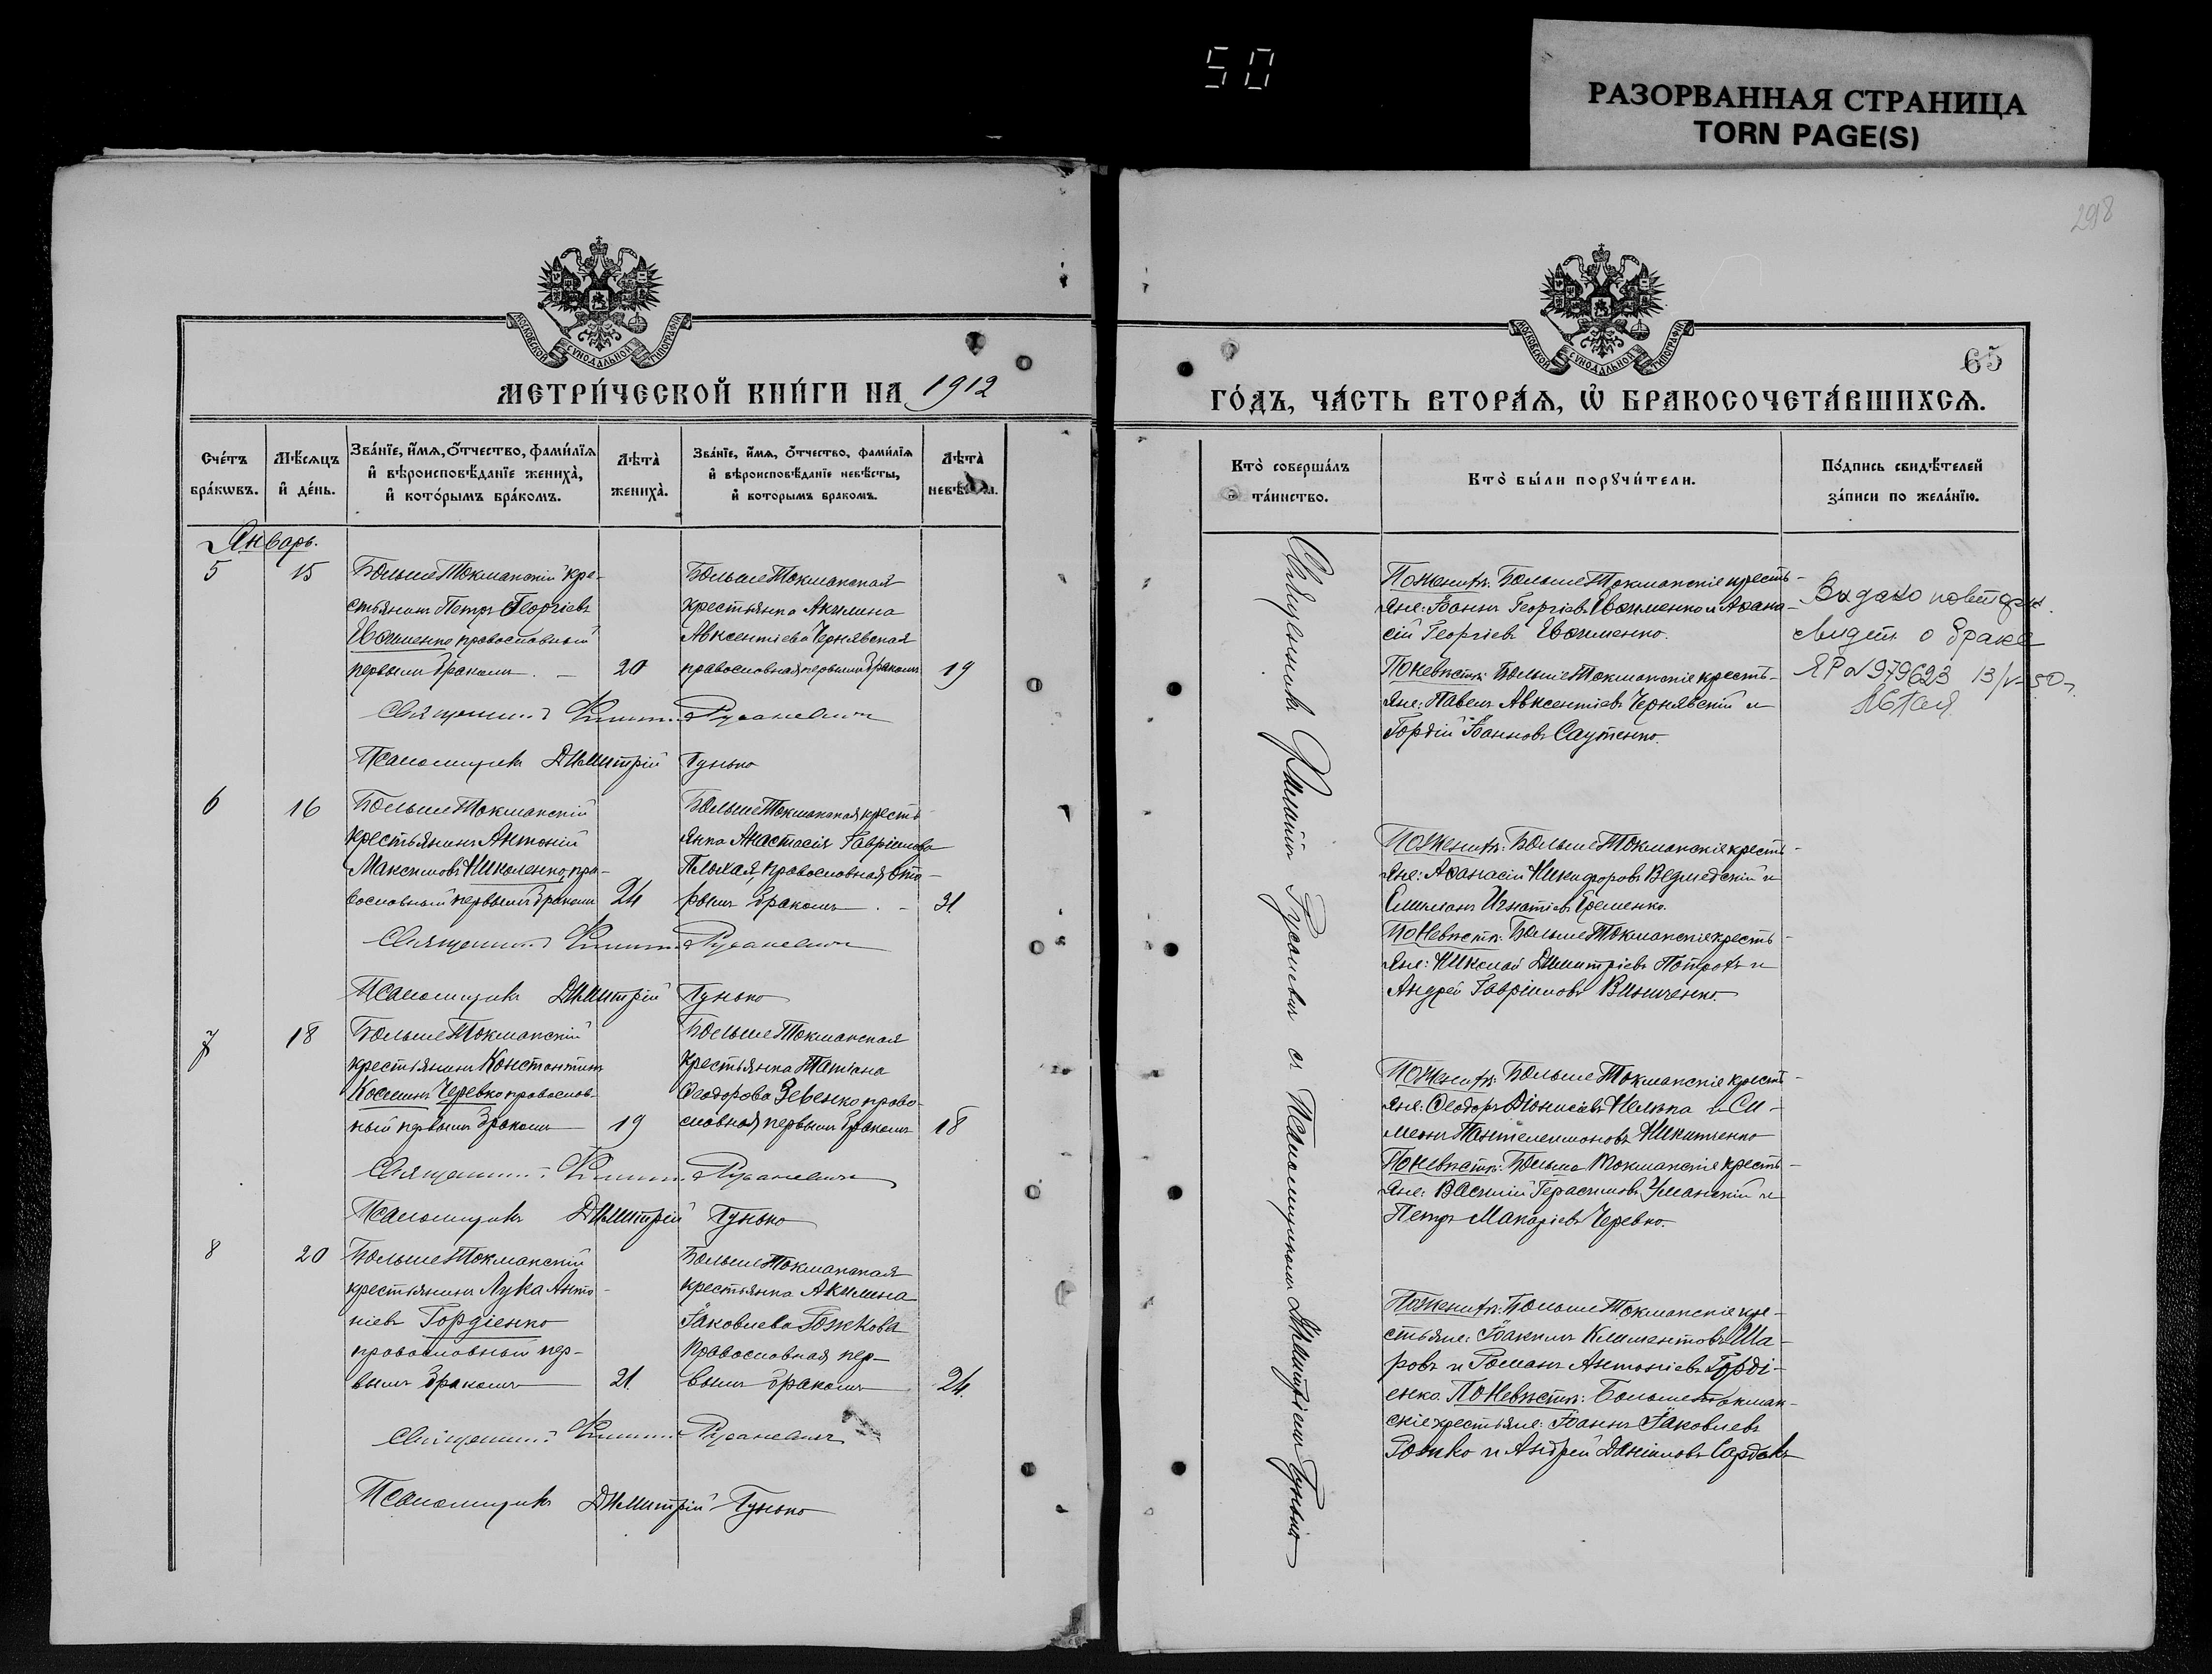 50
РАЗОРВАННАЯ СТРАНИЦА
TORN PAGE(S)
298
МОСКОВСКОЙ СѴНОДАЛЬНОЙ ТИПОГРАФІИ
МЕТРИ́ЧЕСКОЙ КНИ́ГИ НА 1912
Сче́тъ бра́кωвъ.
Мѣ́сяцъ и҆ де́нь.
Зва́нїе, и҆́мѧ, ѻ҆́тчество, фами́лїѧ и҆ вѣроисповѣ́данїе жениха̀, и҆ кото́рымъ бра́комъ.
Лѣта̀ жениха̀.
Зва́нїе, и҆́мѧ, ѻ҆́тчество, фами́лїѧ и҆ вѣроисповѣ́данїе невѣ́сты, и҆ которымъ бракомъ.
Лѣта̀
Январь.
5
15
БольшеТокманскій кре-
стьянинъ Петръ Георгіевъ
Евхименко православный
первымъ бракомъ. –
20
БольшеТокманская
крестьянка Акилина
Авксентіева Чернявская
православная первымъ бракомъ
19
Священникъ Русаневич
Псаломщикъ Димитрій Гунько
6
16
БольшеТокманскій
крестьянинъ Антоній
Максимовъ Николенко, пра-
вославный первымъ бракомъ
24
БольшеТокманская кресть-
янка Анастасія Гавріилова
Плохая, православная вто-
рымъ бракомъ. –
31.
Священникъ Русаневич
Псаломщикъ Димитрій Гунько
7
18
БольшеТокманскій
крестьянинъ Константинъ
Косминъ Черевко православ-
ный первымъ бракомъ
19
БольшеТокманская
крестьянка Татіана
Ѳеодорова Зевенко право-
славная первымъ бракомъ
18
Священникъ Русаневич
Псаломщикъ Димитрій Гунько
8
20
БольшеТокманскій
крестьянинъ Лука Анто-
ніевъ Гордіенко
православный пер-
вымъ бракомъ
21.
БольшеТокманская
крестьянка Акилина
Іаковлева Рожкова
православная пер-
вымъ бракомъ
24.
Священникъ Русаневич
Псаломщикъ Димитрій Гунько
МОСКОВСКОЙ СѴНОДАЛЬНОЙ ТИПОГРАФІИ
65
ГО́ДЪ, ЧА́СТЬ ВТОРА́Ѧ, Ѡ҆ БРАКОСОЧЕТА́ВШИХСѦ.
Кто̀ соверша́лъ та́инство.
Кто̀ бы́ли порꙋчи́тели.
По́дпись свидѣ́телей за́писи по жела́нїю.
Священникъ Русаневич съ Псаломщикомъ Димитріемъ Гунько
По женихѣ: БольшеТокманскіе кресть-
яне: Іоаннъ Георгіевъ Евхименко и Аѳана-
сій Георгіевъ Евхименко.
По невѣстѣ: БольшеТокманскіе кресть-
яне: Павелъ Авксентіевъ Чернявскій и
Гордій Іоанновъ Саутенко.
о браке
ЯР № 979623 13/V-50 г.
По женихѣ: БольшеТокманскіе кресть-
яне: Аѳанасій Никифоровъ Ведмедскій и
Емиліанъ Игнатіевъ Еременко.
По невѣстѣ: БольшеТокманскіе кресть-
яне: Николай Димитріевъ и
Андрей Гавріиловъ Винниченко.
По женихѣ: БольшеТокманскіе кресть-
яне: Ѳеодоръ Діонисіевъ и Си-
меонъ Пантелеимоновъ Никитченко
По невѣстѣ: БольшеТокманскіе кресть-
яне: Василій Герасимовъ Уманскій и
Петръ Макаріевъ Черевко.
По женихѣ: БольшеТокманскіе кре-
стьяне: Іоакимъ Климентовъ Ша-
ровъ и Романъ Антоніевъ Горді-
енко. По невѣстѣ: БольшеТокман-
скіе крестьяне: Іоаннъ Іаковлевъ
Рожко и Андрей Даніиловъ Сардакъ